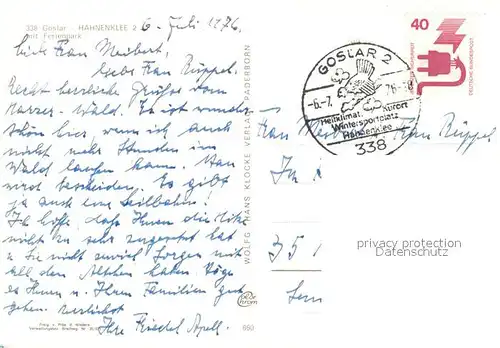 338 Goslar - HAHNENKLEE 2
mit Ferienpark
6. Juli 1976.
Liebe Frau Meibert,
Liebe Frau Rüppel.
Recht herzliche Grüße vom
Harzer-Wald. Es ist wunder
schön hier wenn ich auch
nicht mehr Stunden im
Wald laufen kann. Man
wird bescheiden. Es gibt
ja auch eine Seilbahn!
Ich hoffe, daß Ihnen die
nicht zu sehr zugesetzt hat
u. Sie nicht zuviel Sorgen mit
all den Alten haben.
es Ihnen u. Ihren Familien gut
gehen. Herzlichst
Ihre Friedel Apell.
WOLFG. HANS KLOCKE VERLAG PADERBORN
660
40
DEUTSCHE BUNDESPOST
GOSLAR 2
-6.-7. 76-18
Heilklimat. Kurort
Wintersportplatz
Hahnenklee
338
Frau Rüppel
35
privacy protection
Datenschutz